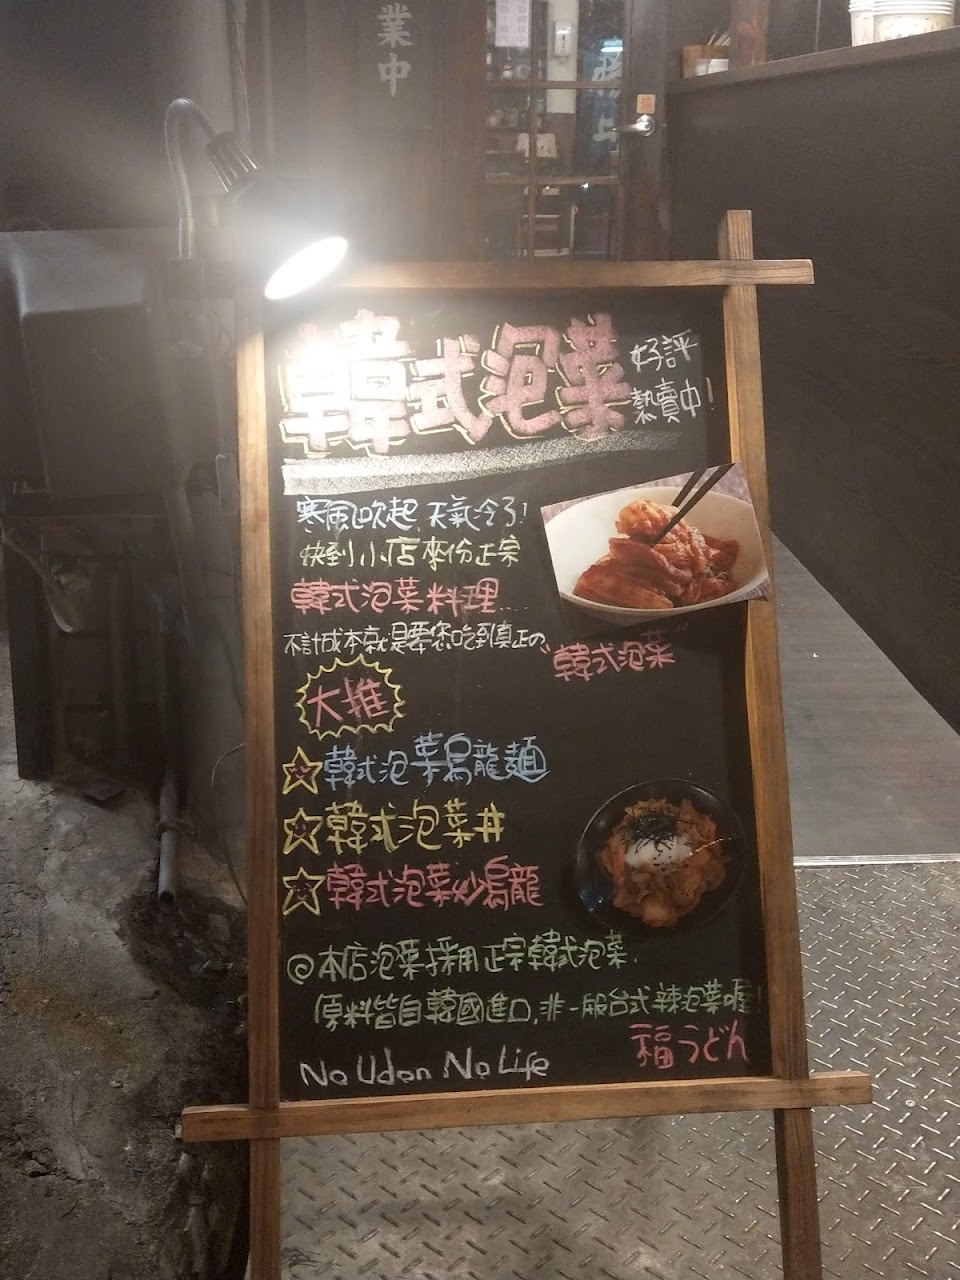 業中
韓式泡菜
好評
熱賣中!
寒風吹起,天氣冷了!
快到小店來份正宗
韓式泡菜料理....
不計成本就是要您吃到真正の
"韓式泡菜"
大推
韓式泡菜烏龍麵
韓式泡菜丼
韓式泡菜炒烏龍
@本店泡菜採用正宗韓式泡菜.
原料皆自韓國進口,非一般台式辣泡菜喔!
福うどん
No Udon No Life